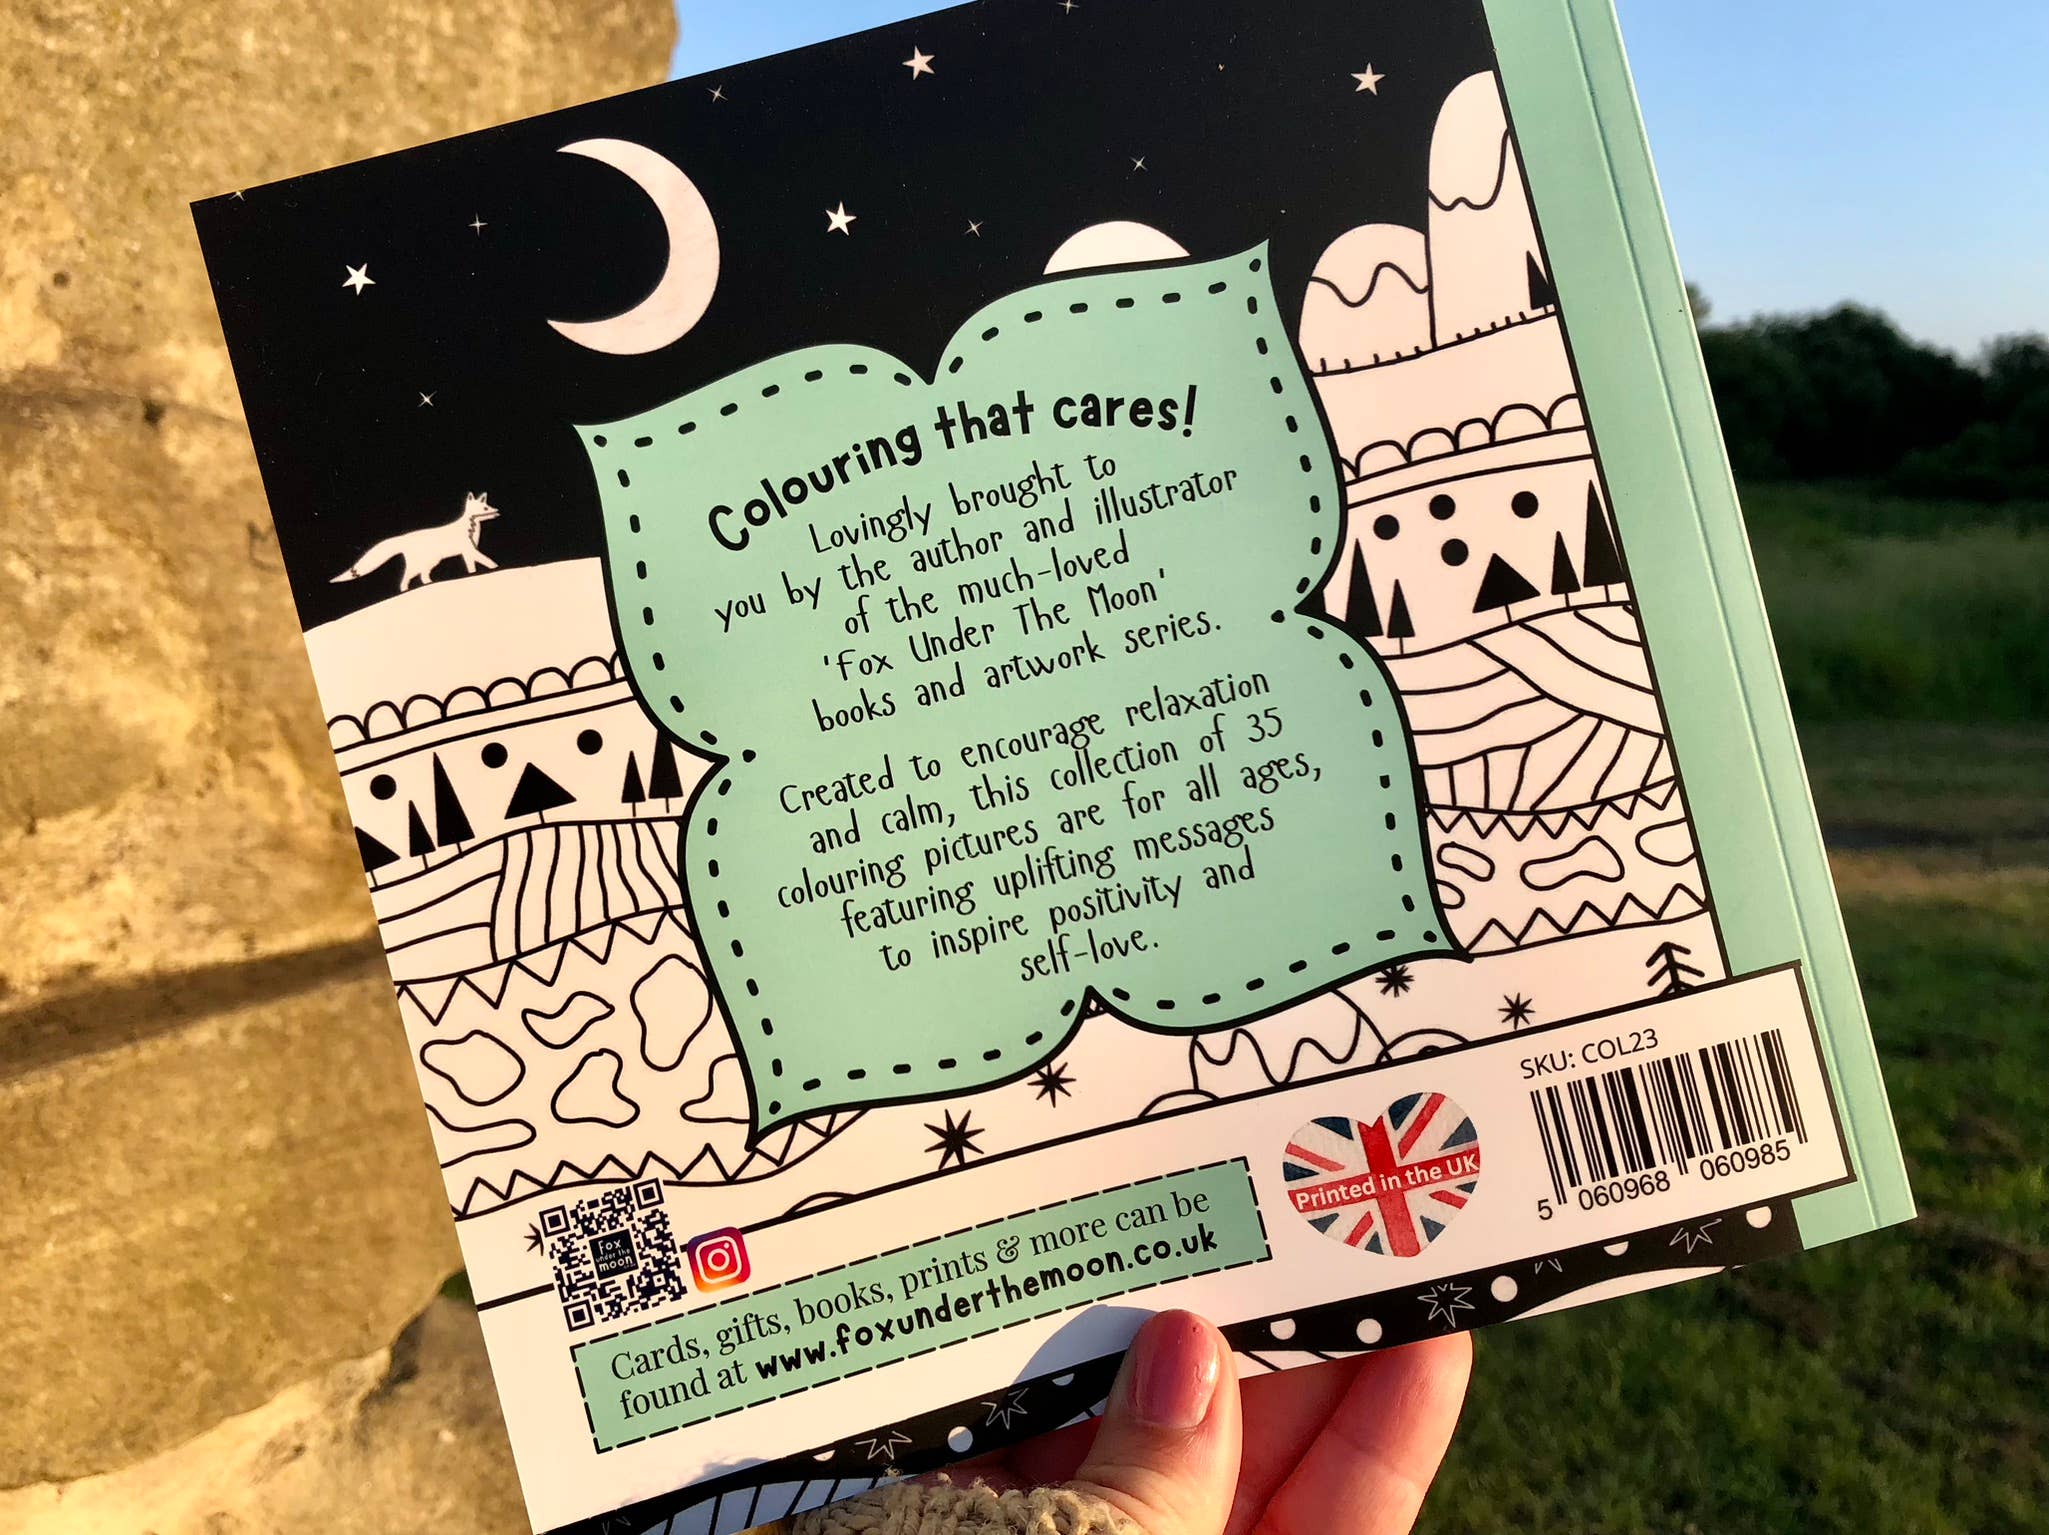 Colouring that cares!
Lovingly brought to
you by the author and illustrator
of the much-loved
'Fox Under The Moon'
books and artwork series.
Created to encourage relaxation
and calm, this collection of 35
colouring pictures are for all ages,
featuring uplifting messages
to inspire positivity and
self-love.
SKU: COL23
5 060968 060985
Printed in the UK
fox
under the
moon
Cards, gifts, books, prints & more can be
found at www.foxunderthemoon.co.uk